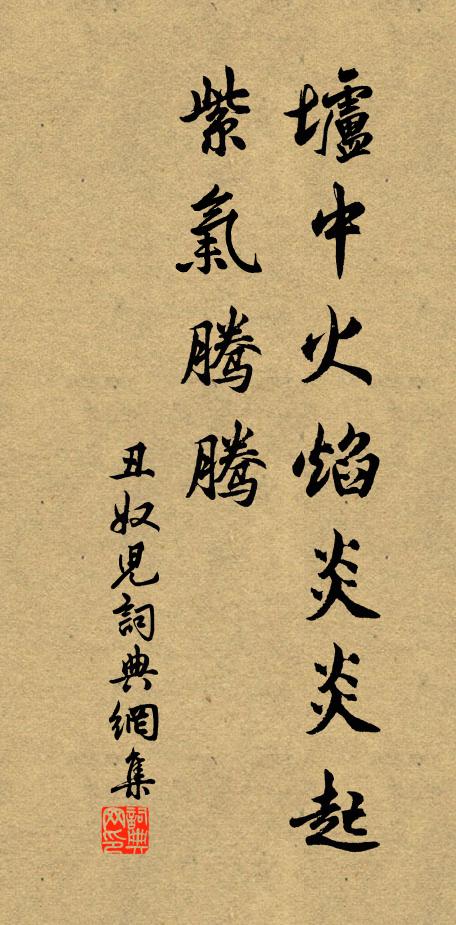 壚中火焰炎炎起
紫氣騰騰
丑奴兒詞典網集
詞典网印